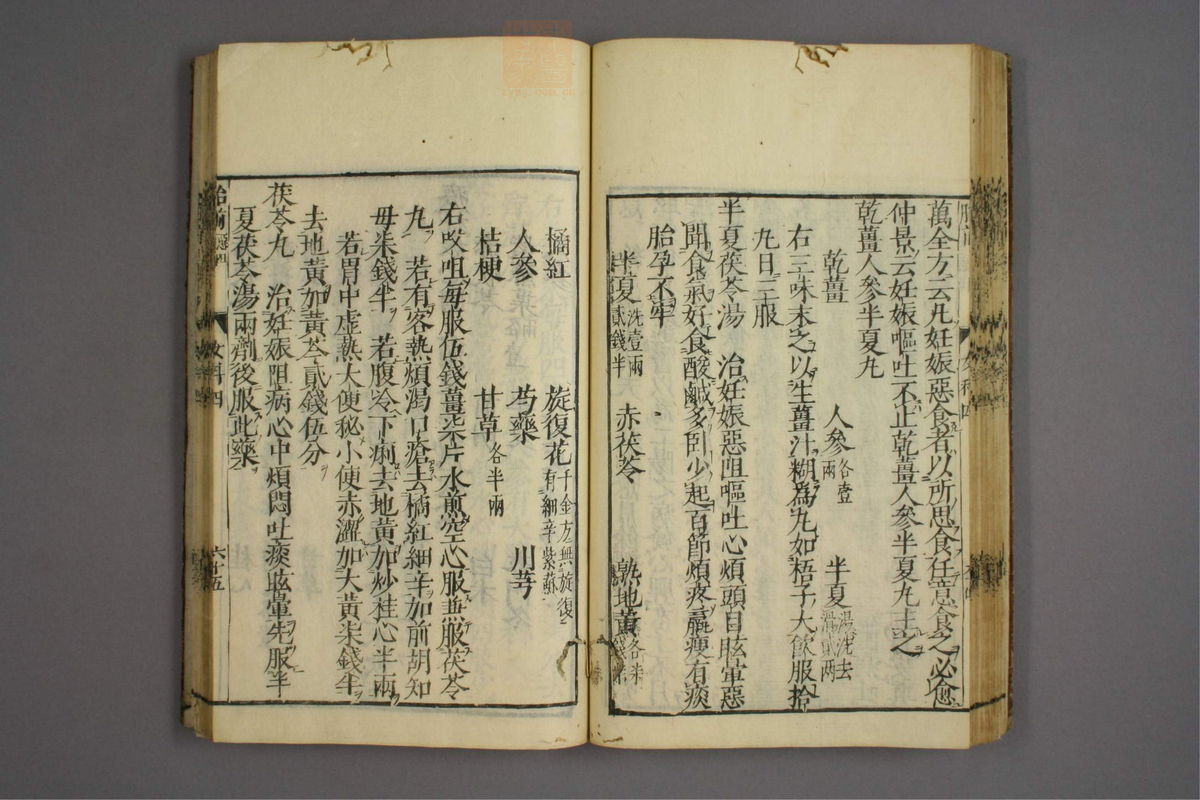 萬全方云凡妊娠惡食者以所思食任意食之必愈
仲景云妊娠嘔吐不止乾薑人參半夏丸主之
乾薑人參半夏丸
乾薑 人參各壹兩 半夏湯洗去滑貳兩
右三味末之以生薑汁糊為丸如梧子大飲服拾
丸日三服
半夏茯苓湯 治妊娠惡阻嘔吐心煩頭目眩暈惡
聞食氣好食酸鹹多卧少起百節煩疼羸瘦有痰
胎孕不牢
半夏洗壹兩貳錢半 赤茯苓 熟地黃各柒錢半
橘紅 旋復花千金方無旋復有細辛紫蘇
人參 芍藥 川芎
桔梗 甘草各半兩
右㕮咀每服伍錢薑柒片水煎空心服兼服茯苓
丸 若有客熱煩渴口瘡去橘紅細辛加前胡知
母柒錢半 若腹冷下痢去地黃加炒桂心半兩
若胃中虛熱大便秘小便赤澀加大黃柒錢半
去地黃加黃芩貳錢伍分
茯苓丸 治妊娠阻病心中煩悶吐痰眩暈先服半
夏茯苓湯兩劑後服此藥
女科四
六十五